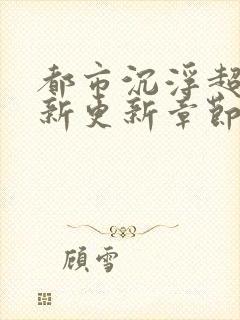 都市沉浮超
新更新章節
顾雪